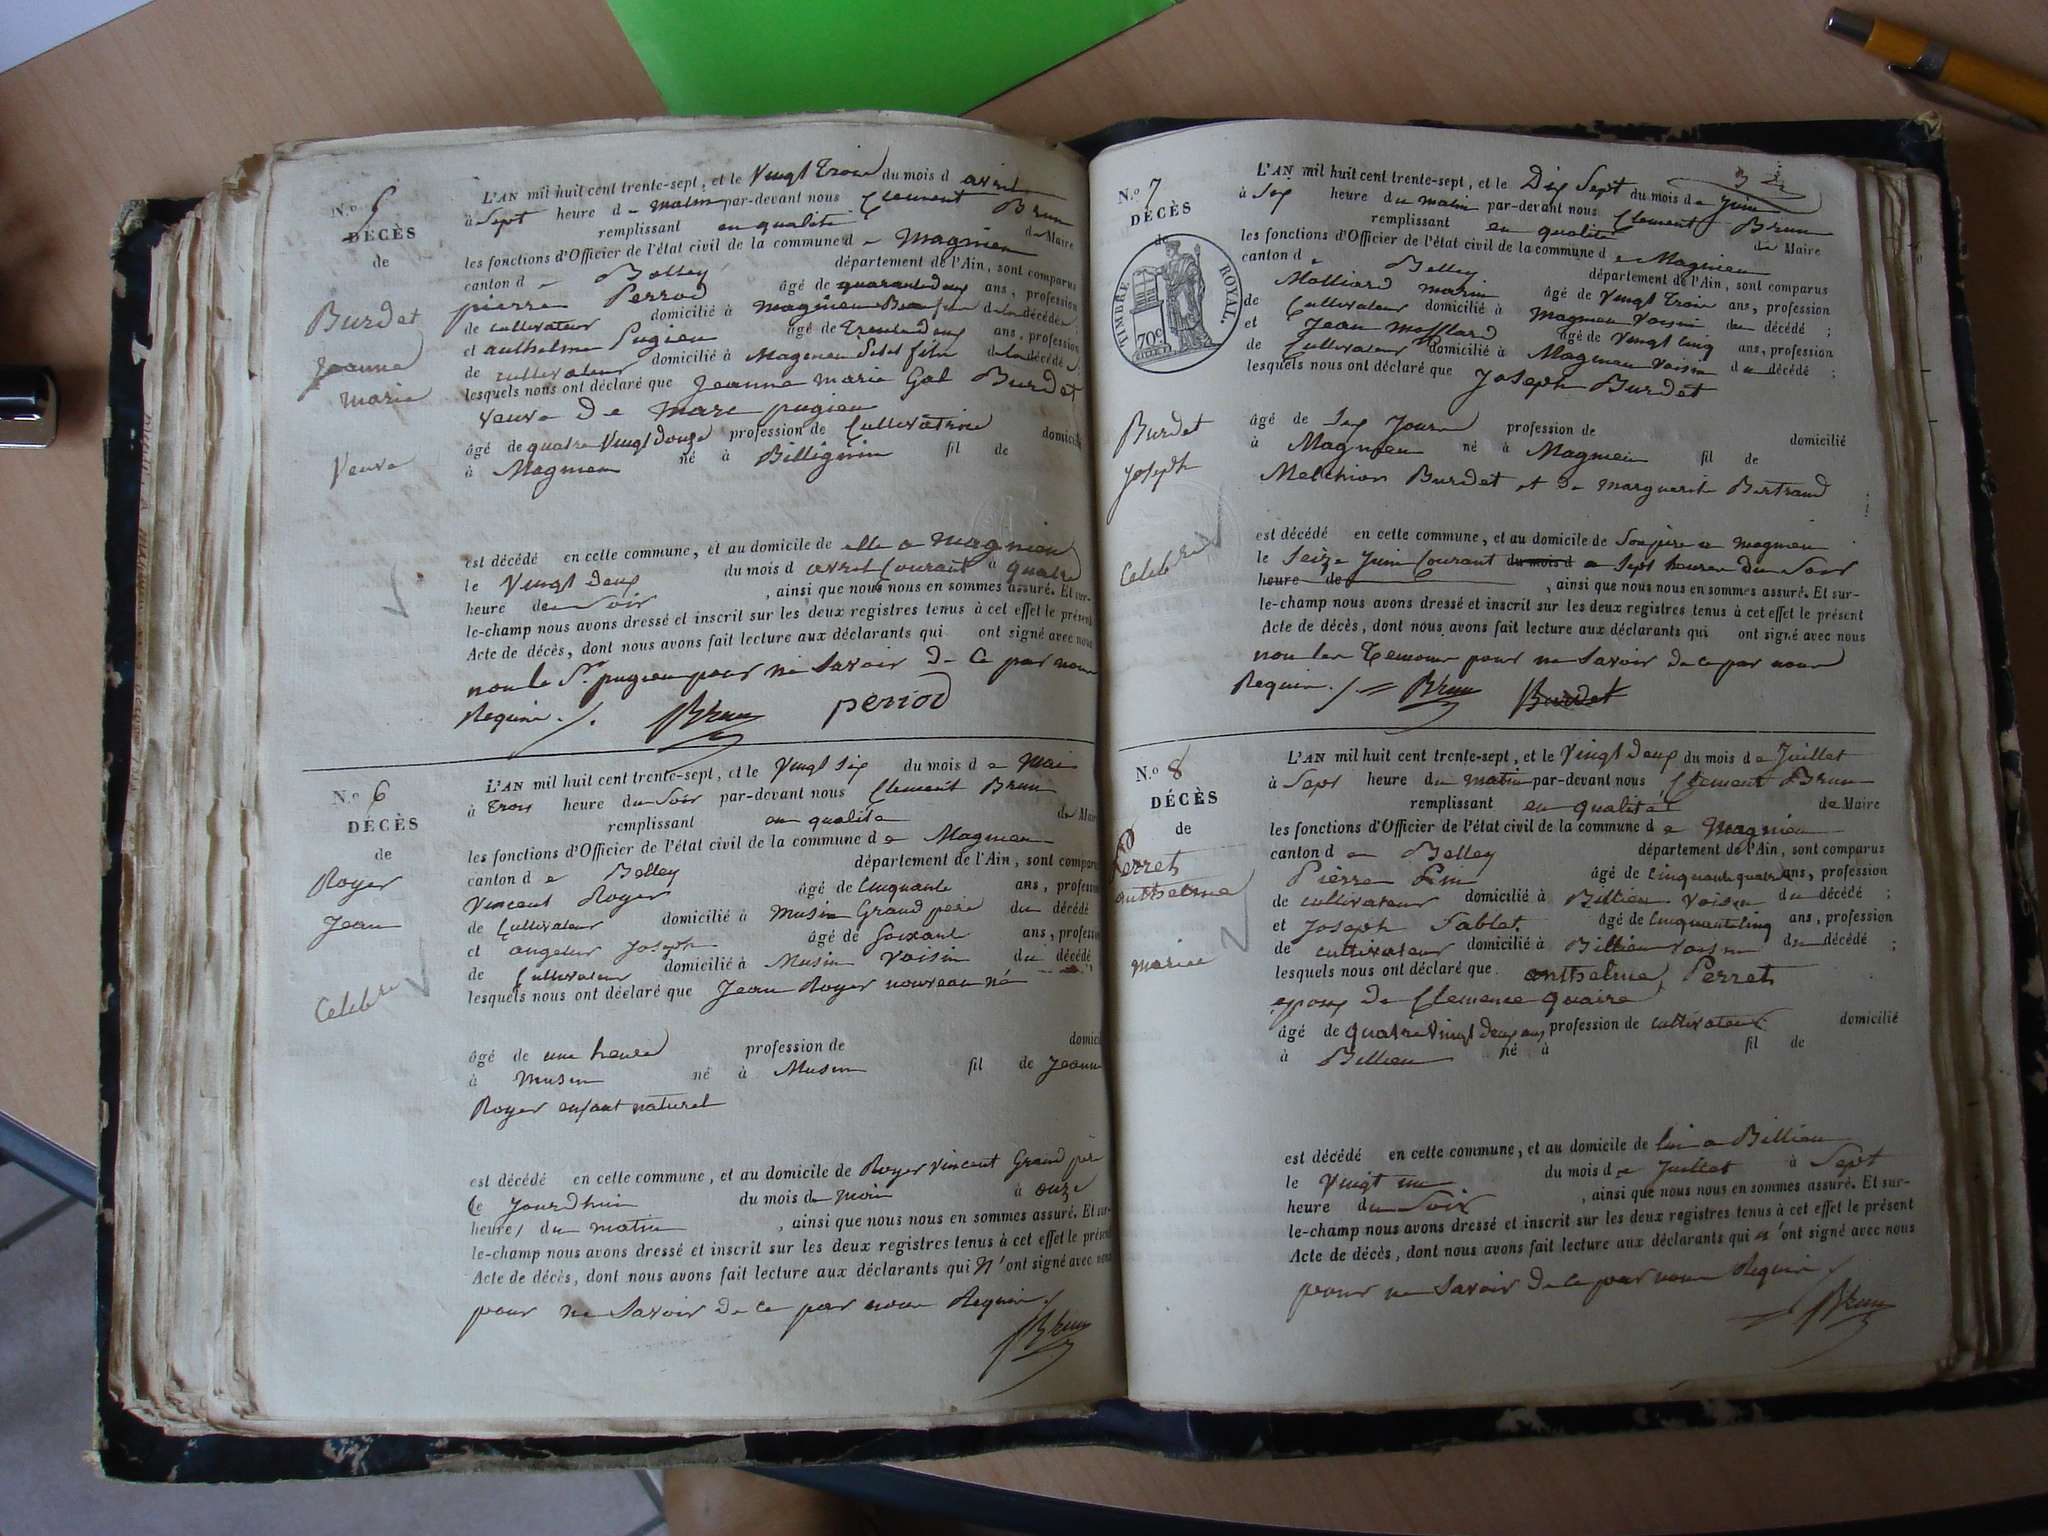 N.º 5
DÉCÈS
de
Burdet
Jeanne
marie
Veuve
L'AN mil huit cent trente-sept, et le Vingt trois du mois d avril
à Sept heure d matin par-devant nous Clement Brun
remplissant en qualité de Maire
les fonctions d'Officier de l'état civil de la commune d e Magnieu
canton d e Belley département de l'Ain, sont comparus
pierre Perrod âgé de quarante deux ans, profession
de cultivateur domicilié à Magnieu Beau fils de la décédée ;
et anthelme Pugieu âgé de Trente deux ans, profession
de cultivateur domicilié à Magnieu petit fils de la décédé ;
lesquels nous ont déclaré que Jeanne marie Gal Burdet
veuve de marc pugieu
âgé de quatre Vingt douze profession de Cultivatrice domicilié
à Magnieu né à Billignin fil de
est décédé en cette commune, et au domicile de elle a Magnieu
le Vingt deux du mois d avril Courant à quatre
heure de Soir , ainsi que nous nous en sommes assuré. Et sur-
le-champ nous avons dressé et inscrit sur les deux registres tenus à cet effet le présent
Acte de décès, dont nous avons fait lecture aux déclarants qui ont signé avec nous
non le Sr. pugieu pour ne Savoir de ce par nous
Requis ./. Brun perrod
N.º 6
DÉCÈS
de
Royer
Jean
Celibre
L'AN mil huit cent trente-sept, et le Vingt Six du mois d e Mai
à Trois heure du Soir par-devant nous Clement Brun
remplissant en qualité de Maire
les fonctions d'Officier de l'état civil de la commune d e Magnieu
canton d e Belley département de l'Ain, sont comparus
Vincent Royer âgé de Cinquante ans, profession
de Cultivateur domicilié à Musin Grand pere du décédé
et Joseph âgé de Soixante ans, profession
de Cultivateur domicilié à Musin Voisin du décédé
lesquels nous ont déclaré que Jean Royer nouveau né
âgé de une heure profession de domici
à Musin né à Musin fil de Jeanne
Royer enfant naturel
est décédé en cette commune, et au domicile de Royer Vincent Grand père
le Jourdhui du mois de Mai à onze
heure, du matin , ainsi que nous nous en sommes assuré. Et sur-
le-champ nous avons dressé et inscrit sur les deux registres tenus à cet effet le présent
Acte de décès, dont nous avons fait lecture aux déclarants qui N'ont signé avec nous
pour ne Savoir de ce par nous Requis ./.
Brun
N.º 7
DÉCÈS
de
TIMBRE ROYAL.
70c
Burdet
Joseph
Celibre
L'AN mil huit cent trente-sept, et le Dix Sept du mois de Juin
à Six heure du matin par-devant nous Clement Brun
remplissant en qualité de Maire
les fonctions d'Officier de l'état civil de la commune d e Magnieu
canton d e Belley département de l'Ain, sont comparus
Molliard marin âgé de Vingt Trois ans, profession
de Cultivateur domicilié à Magnieu Voisin du décédé ;
et Jean âgé de Vingt Cinq ans, profession
de Cultivateur domicilié à Magnieu Voisin du décédé ;
lesquels nous ont déclaré que Joseph Burdet
âgé de Six Jours profession de domicilié
à Magnieu né à Magnieu fil de
Melchior Burdet et de Marguerite Bertrand
est décédé en cette commune, et au domicile de Son père a magnieu
le Seize Juin Courant du mois d a Sept heures du Soir
heure de , ainsi que nous nous en sommes assuré. Et sur-
le-champ nous avons dressé et inscrit sur les deux registres tenus à cet effet le présent
Acte de décès, dont nous avons fait lecture aux déclarants qui ont signé avec nous
non les Temoins pour ne Savoir de ce par nous
Requis ./. Brun Burdet
N.º 8
DÉCÈS
de
Perret
anthelme
mariée
L'AN mil huit cent trente-sept, et le Vingt deux du mois d e Juillet
à Sept heure du matin par-devant nous Clement Brun
remplissant en qualité de Maire
les fonctions d'Officier de l'état civil de la commune d e Magnieu
canton d e Belley département de l'Ain, sont comparus
Pierre âgé de Cinquante quatre ans, profession
de cultivateur domicilié à Billieu Voisin du décédé ;
et Joseph Sablet âgé de Cinquante Cinq ans, profession
de cultivateur domicilié à Billieu voisin du décédé ;
lesquels nous ont déclaré que anthelme Perret
epoux de Clemence quaire
âgé de quatre Vingt deux ans profession de cultivateur domicilié
à Billieu né à fil de
est décédé en cette commune, et au domicile de lui a Billieu
le Vingt un du mois d e Juillet à Sept
heure du Soir , ainsi que nous nous en sommes assuré. Et sur-
le-champ nous avons dressé et inscrit sur les deux registres tenus à cet effet le présent
Acte de décès, dont nous avons fait lecture aux déclarants qui n'ont signé avec nous
pour ne Savoir de ce par nous Requis ./.
Brun